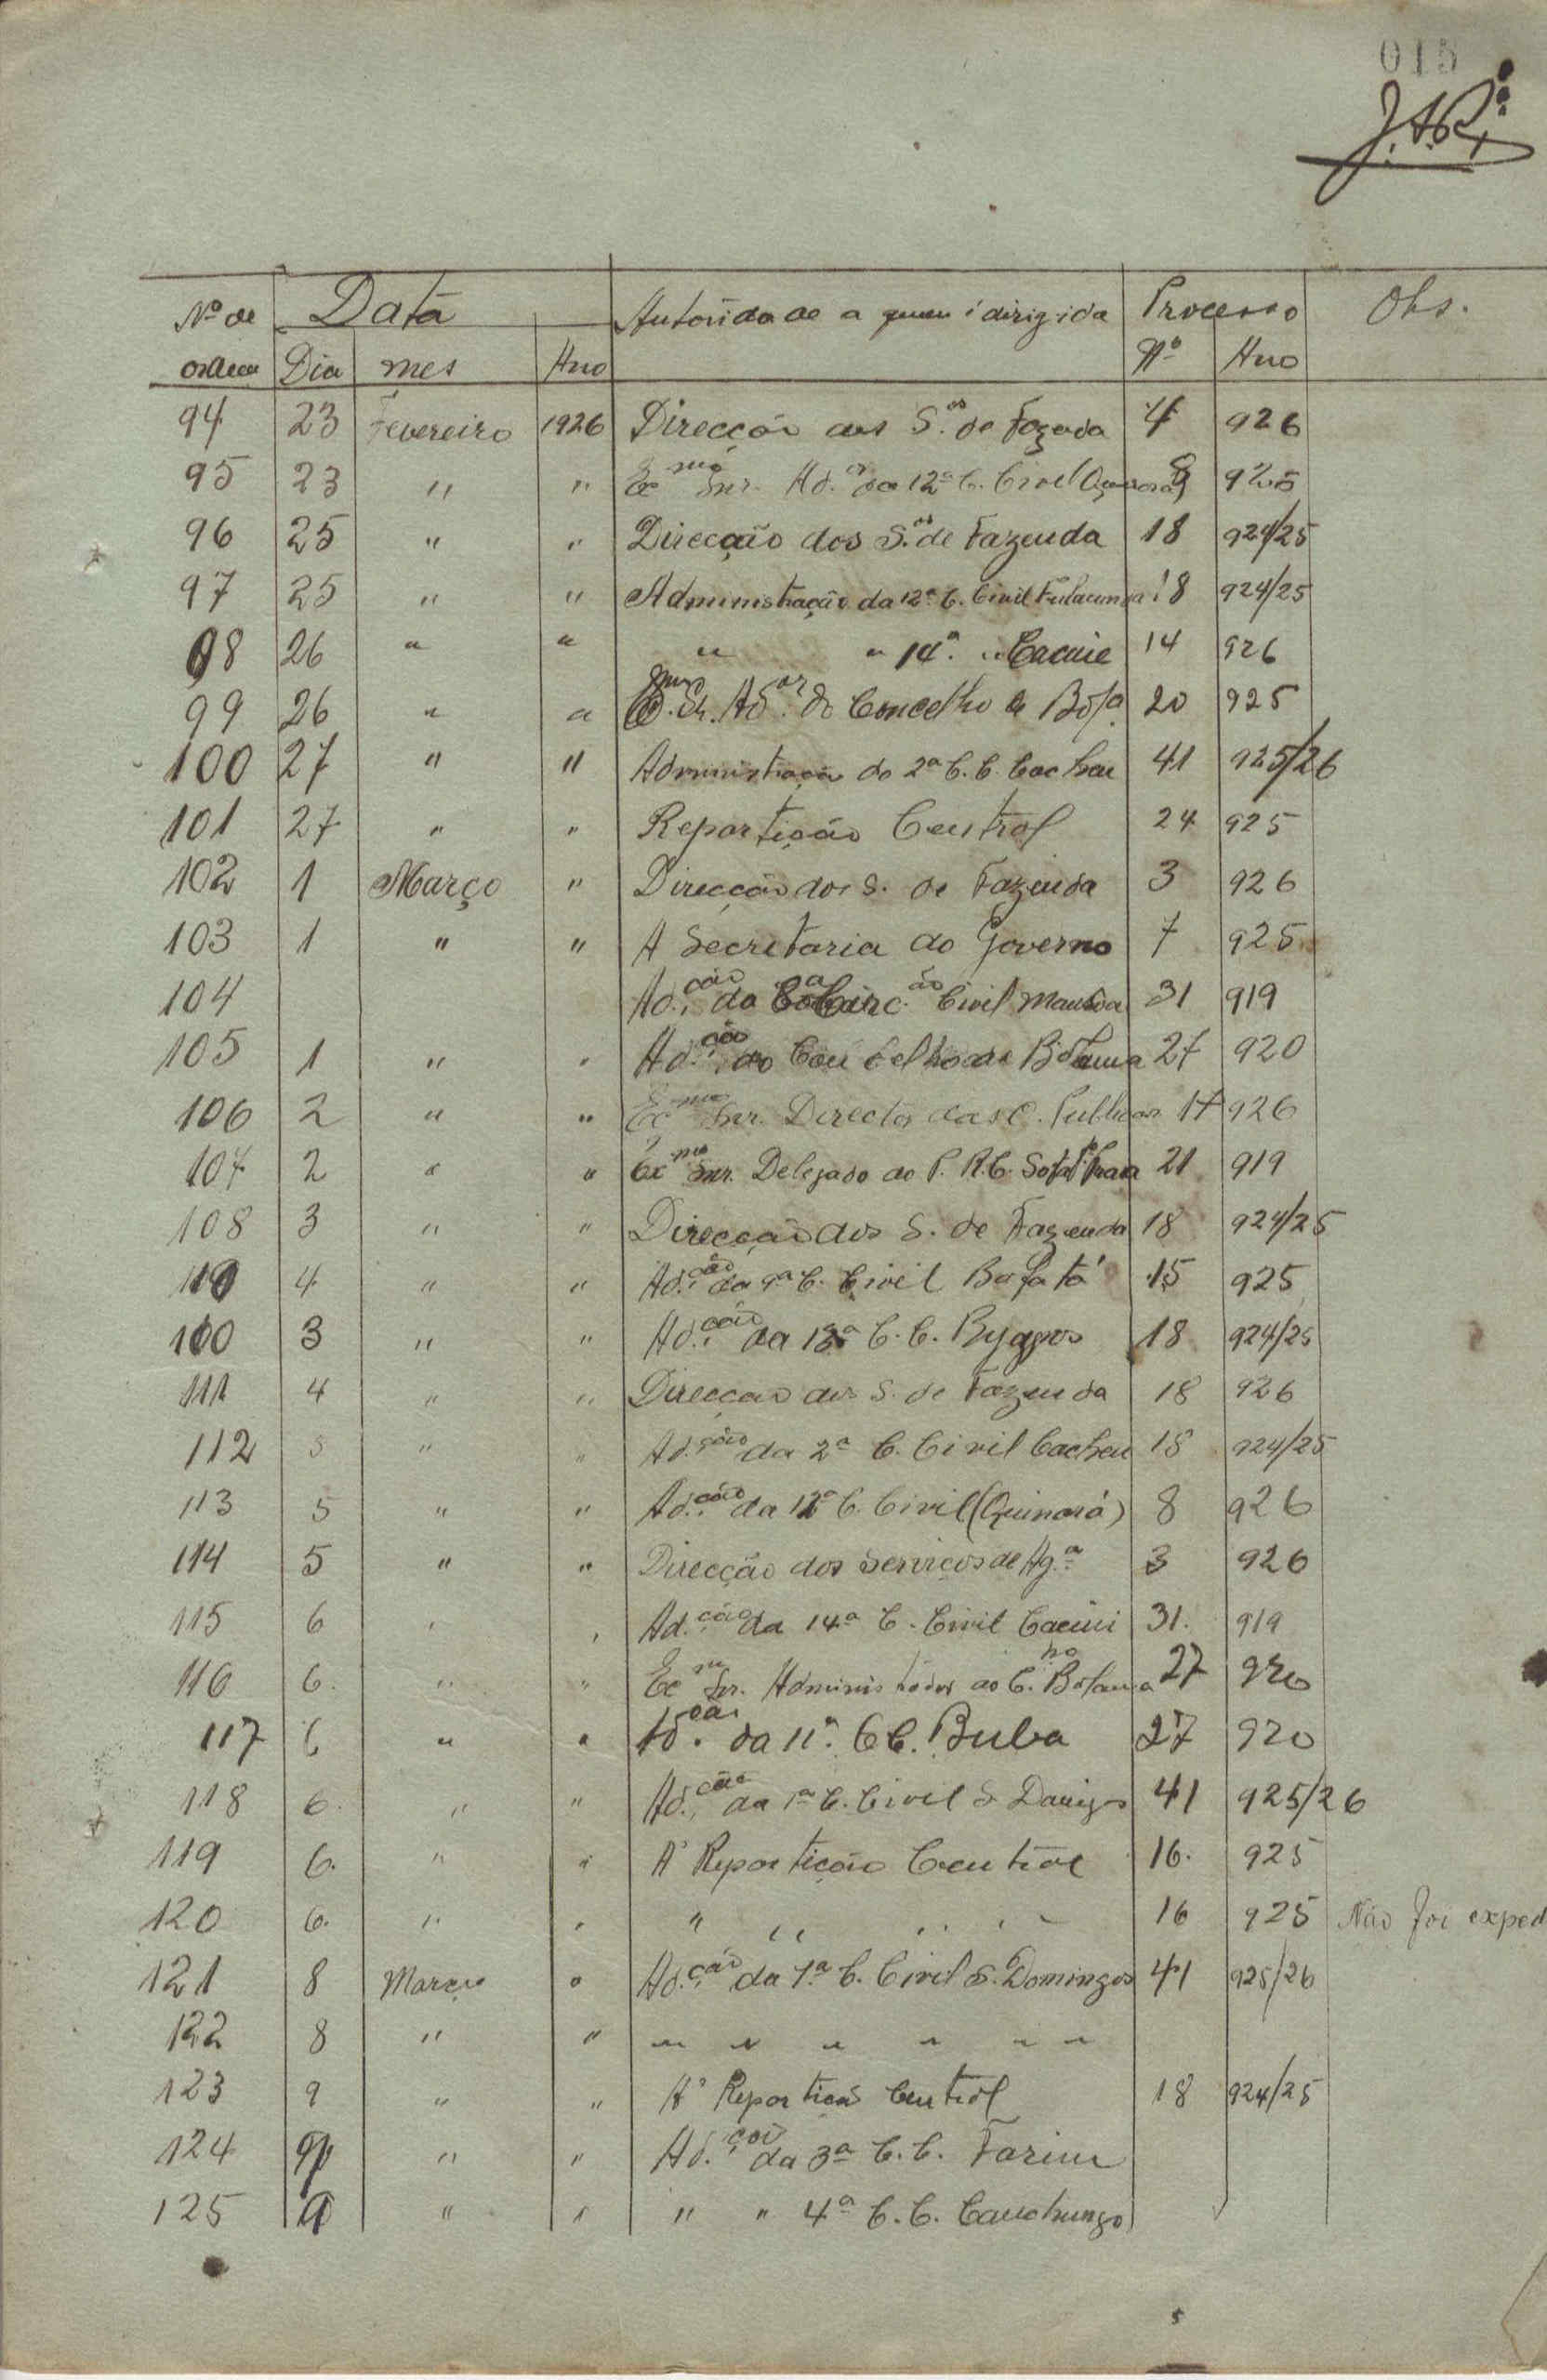 015
Nº de Data Autoridade a quem é dirigida Processo Obs.
ordem Dia mes Ano Nº Ano
94 23 Fevereiro 1926 Direcção dos S.os de Fazenda 4 926
95 23 " " Exmo Snr. Ad.or da 12ª C. Civil 9 925
96 25 " " Direcção dos S.os de Fazenda 18 924/25
97 25 " " Administração da 12ª C. Civil Fulacunda 18 924/25
98 26 " " " " 14ª " Cacine 14 926
99 26 " " Sr. Ad.or do Concelho de Bolª 20 925
100 27 " " Administração da 2ª C. C. Cacheu 41 925/26
101 27 " " Repartição Central 24 925
102 1 Março " Direcção dos S. de Fazenda 3 926
103 1 " " A Secretaria do Governo 7 925
104 Ad.ção da Circ.ão Civil Mansoa 31 919
105 1 " " Ad.ção do Concelho de Bolama 27 920
106 2 " " Exmo Snr. Director das O. Publicas 17 926
107 2 " " Exmo Snr. Delegado do P. R. C. 21 919
108 3 " " Direcção dos S. de Fazenda 18 924/25
110 4 " " Ad.ção da 9ª C. Civil Bafatá 15 925
100 3 " " Ad.ção da 13ª C. C. Byagos 18 924/25
111 4 " " Direcção dos S. de Fazenda 18 926
112 5 " " Ad.ção da 2ª C. Civil Cacheu 18 924/25
113 5 " " Ad.ção da 12ª C. Civil (Quinará) 8 926
114 5 " " Direcção dos Serviços de Ag.ª 3 926
115 6 " " Ad.ção da 14ª C. Civil Cacini 31. 919
116 6. " " Exm Snr. Administrador do C.ho Bolama 27 920
117 6 " " Ad.ção da 11ª C C. Buba 27 920
118 6. " " Ad.ção da 1ª C. Civil S Domigs 41 925/26
119 6. " " A' Repartição Central 16. 925
120 6. " " " " " " " 16 925 Não foi exped
121 8 Março " Ad.ção da 1.ª C. Civil S. Domingos 41 925/26
122 8 " " " " " " " "
123 9 " " A' Repartição Central 18 924/25
124 9 " " Ad.ção da 3ª C. C. Farim
125 9 " " " " 4ª C. C. Canchungo